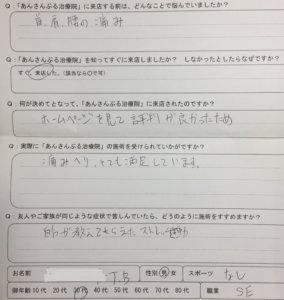 Q：「あんさんぶる治療院」に来店する前は、どんなことで悩んでいましたか？
首、肩、腰の痛み
Q：「あんさんぶる治療院」を知ってすぐに来店しましたか？　しなかったとしたらなぜですか？
すぐ来店した。（該当なら○で可）
Q：何が決めてとなって、「あんさんぶる治療院」に来店されたのですか？
ホームページを見て評判が良かったため
Q：実際に「あんさんぶる治療院」の施術を受けられていかがですか？
痛みへり、とても満足しています。
Q：友人やご家族が同じような症状で苦しんでいたら、どのように施術をすすめますか？
自分が教えてもらえたストレッチ
お名前 J.B. 性別 男 女 スポーツ なし
御年齢 10代 20代 30代 40代 50代 60代 70代 80代 職業 SE